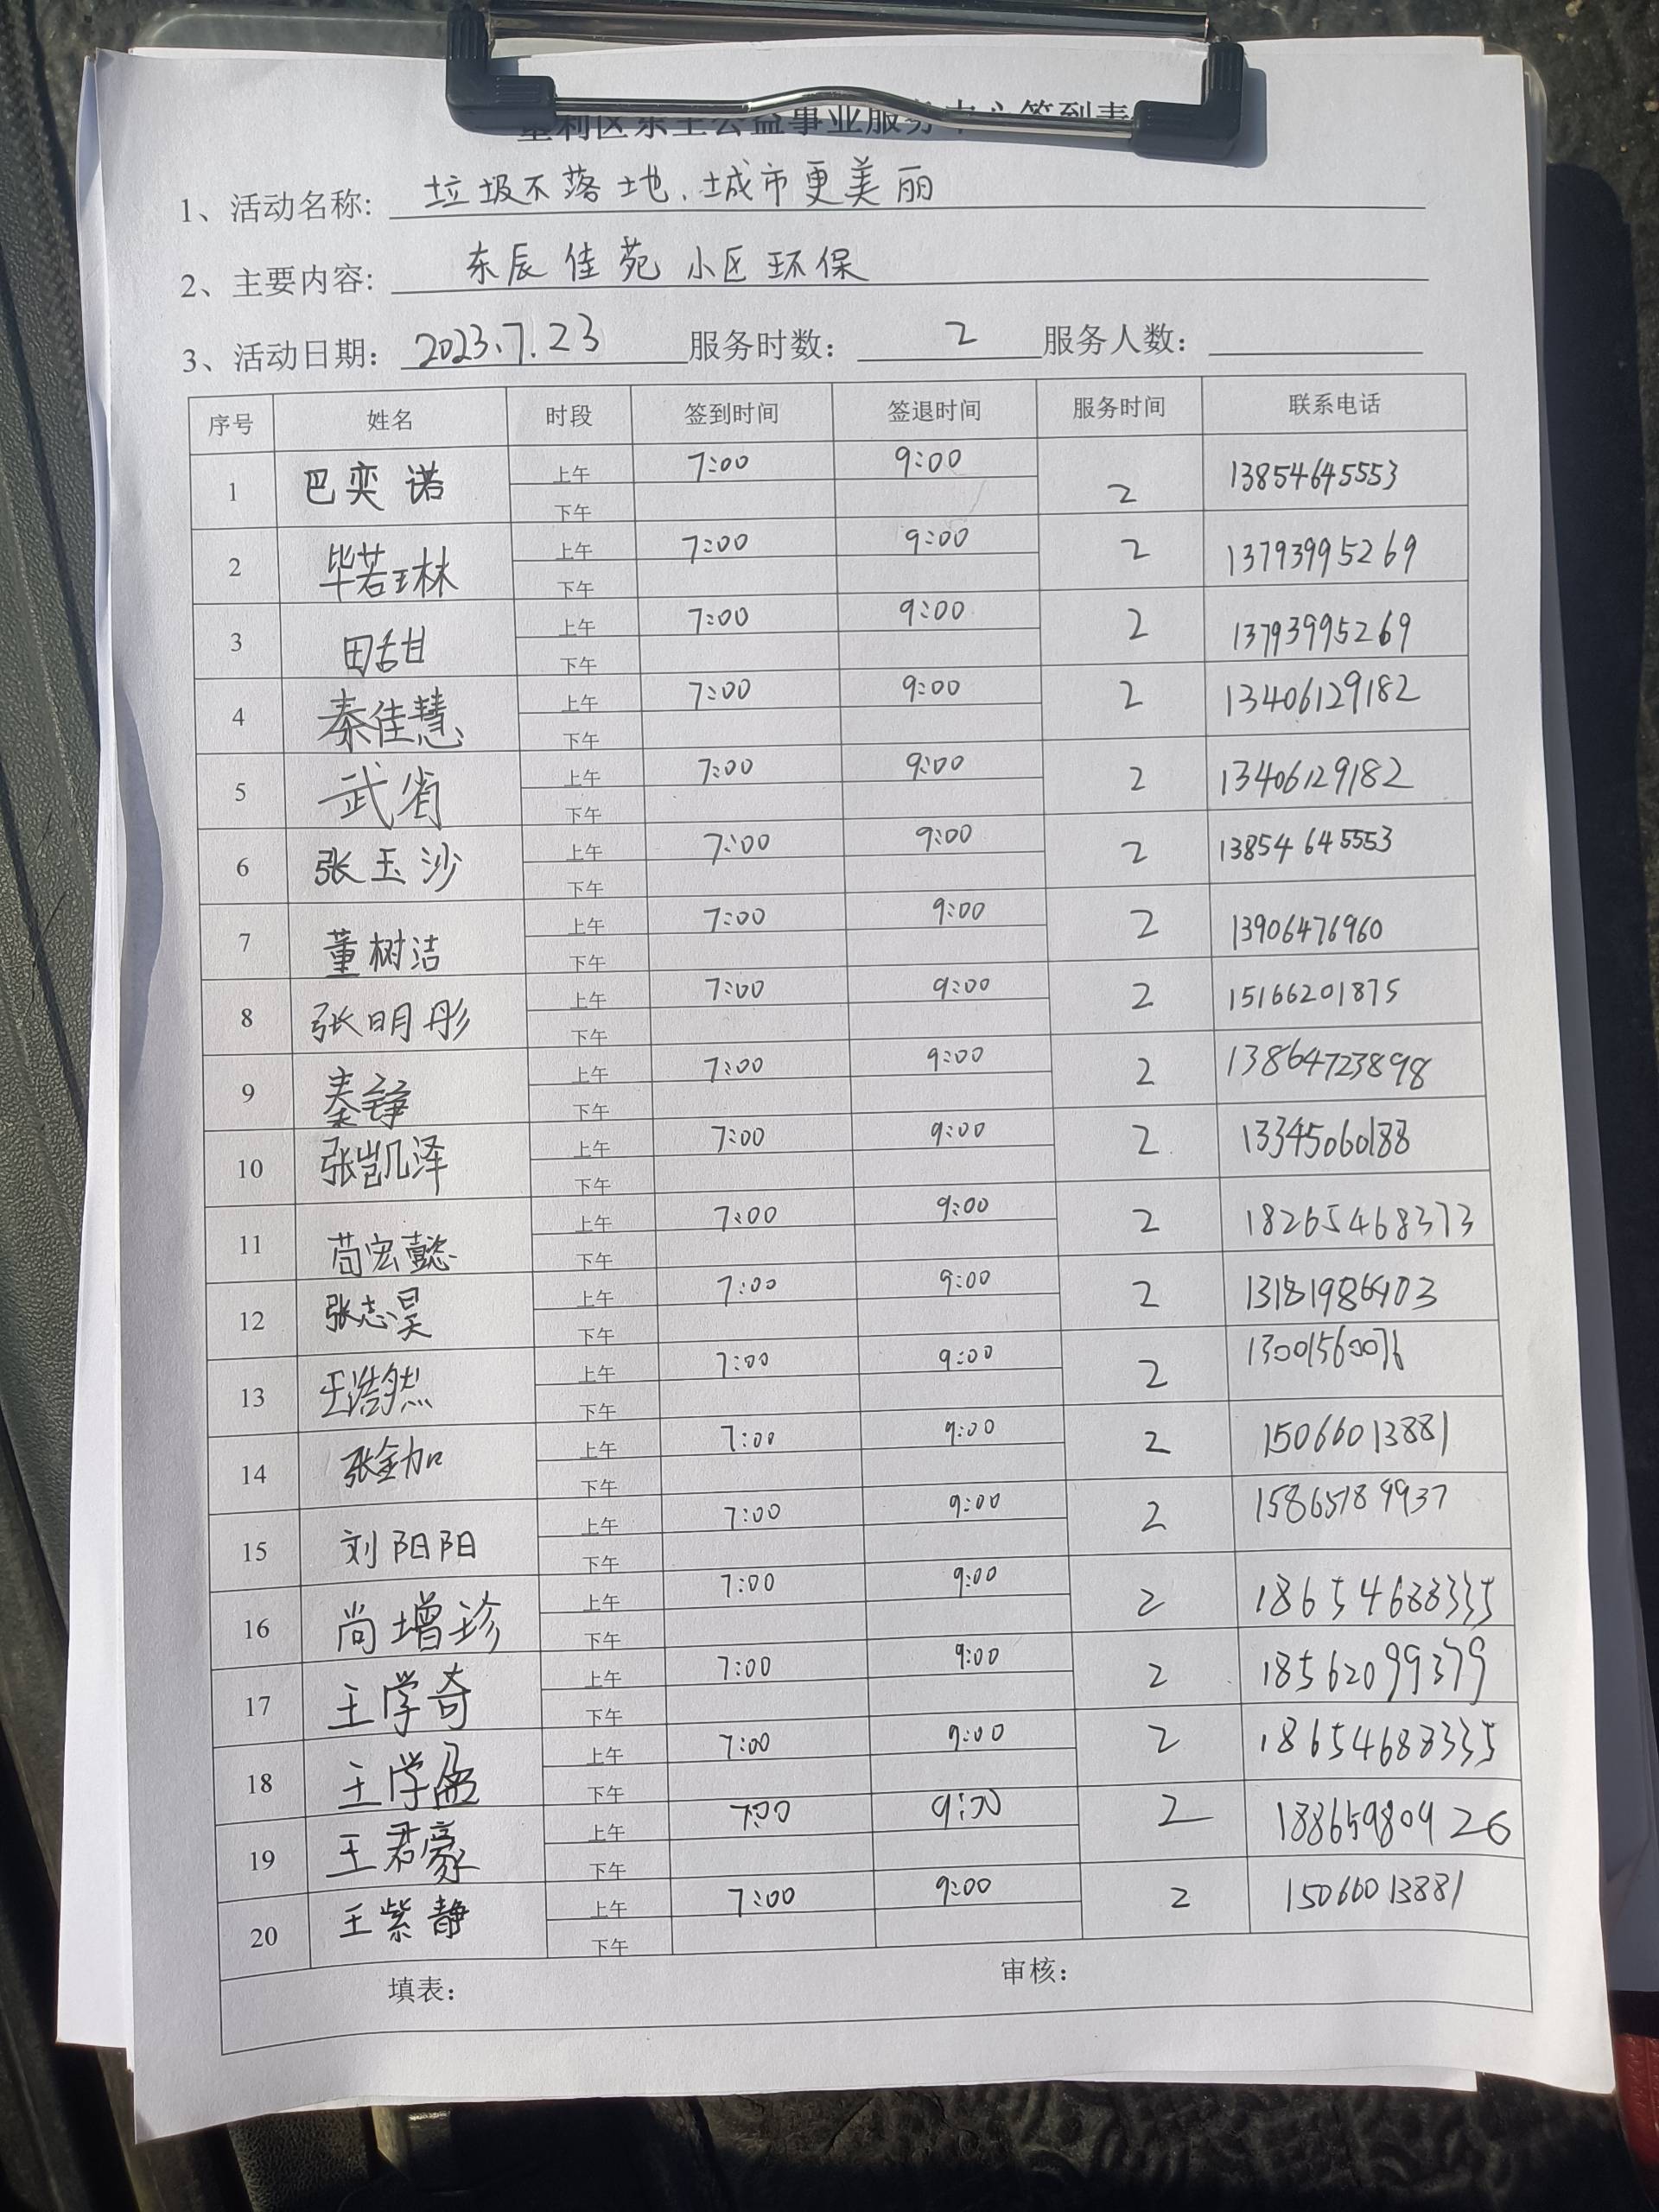 垦利区东王公益事业服务中心签到表
1、活动名称: 垃圾不落地、城市更美丽
2、主要内容: 东辰佳苑小区环保
3、活动日期: 2023.7.23 服务时数: 2 服务人数:
序号 姓名 时段 签到时间 签退时间 服务时间 联系电话
1 巴奕诺 上午 7:00 9:00 2 13854645553
下午
2 毕若琳 上午 7:00 9:00 2 13793995269
下午
3 田甜 上午 7:00 9:00 2 13793995269
下午
4 秦佳慧 上午 7:00 9:00 2 13406129182
下午
5 武省 上午 7:00 9:00 2 13406129182
下午
6 张玉沙 上午 7:00 9:00 2 13854645553
下午
7 董树洁 上午 7:00 9:00 2 13906476960
下午
8 张明彤 上午 7:00 9:00 2 15166201875
下午
9 秦铮 上午 7:00 9:00 2 13864723898
下午
10 张凯泽 上午 7:00 9:00 2 13345060188
下午
11 苟宏懿 上午 7:00 9:00 2 18265468373
下午
12 张志昊 上午 7:00 9:00 2 13181986903
下午
13 王浩然 上午 7:00 9:00 2 13001560076
下午
14 张金加 上午 7:00 9:00 2 15066013881
下午
15 刘阳阳 上午 7:00 9:00 2 15865789937
下午
16 尚增珍 上午 7:00 9:00 2 18654688335
下午
17 王学奇 上午 7:00 9:00 2 18562099379
下午
18 王学盈 上午 7:00 9:00 2 18654688335
下午
19 王君豪 上午 7:00 9:00 2 18865980926
下午
20 王紫静 上午 7:00 9:00 2 15066013881
下午
填表: 审核: